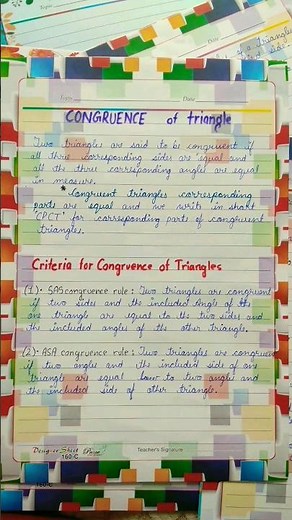 Date
CONGRUENCE of triangle
Two triangles are said to be congruent if
all three corresponding sides are equal and
all the three corresponding angles are equal
in measure.
Congruent triangles corresponding
parts are equal and we write in short
'CPCT' for corresponding parts of congruent
triangles.
Criteria for Congruence of Triangles
(1)- SAS congruence rule: Two triangles are congruent
if two sides and the included angle of the
one triangle are equal to the two sides and
the included angles of the other triangle.
(2)- ASA congruence rule: Two triangles are congruen
if two angles and the included side of one
triangle are equal to two angles and
the included side of other triangle.
Designer Sheet
160-C
Teacher's Signature